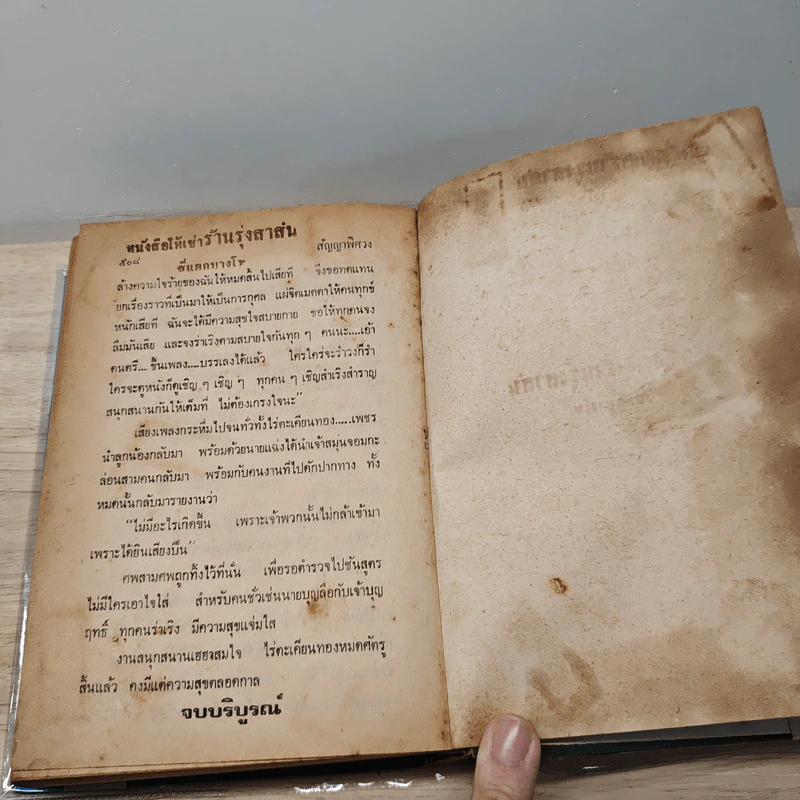 หนังสือให้เช่าร้านรุ่งสาส์น
๕๐๘ สัญญาพิศวง
สี่แยกทางโ
ล้างความใจร้ายของฉันให้หมดสิ้นไปเสียที จึงขอทดแทน
ยกเรื่องราวที่เป็นมาให้เป็นการกุศล แผ่จิตเมตตาให้คนทุกข์
หนักเสียที ฉันจะได้มีความสุขใจสบายกาย ขอให้ทุกคนจง
ลืมมันเสีย และจงร่าเริงตามสบายใจกันทุก ๆ คนนะ....เอ้า
ดนตรี... ขึ้นเพลง....บรรเลงได้แล้ว ใครใคร่จะรำวงก็รำ
ใครจะดูหนังก็ดูเชิญ ๆ เชิญ ๆ ทุกคน ๆ เชิญสำเริงสำราญ
สนุกสนานกันให้เต็มที่ ไม่ต้องเกรงใจนะ”
เสียงเพลงกระหึ่มไปจนทั่วทั้งไร่ตะเคียนทอง.....เพชร
นำลูกน้องกลับมา พร้อมด้วยนายแฉ่งได้นำเจ้าสมุนจอมกะ
ล่อนสามคนกลับมา พร้อมกับคนงานที่ไปดักปากทาง ทั้ง
หมดนั้นกลับมารายงานว่า
“ไม่มีอะไรเกิดขึ้น เพราะเจ้าพวกนั้นไม่กล้าเข้ามา
เพราะได้ยินเสียงปืน”
ศพสามศพถูกทิ้งไว้ที่นั่น เพื่อรอตำรวจไปชันสูตร
ไม่มีใครเอาใจใส่ สำหรับคนชั่วเช่นนายบุญลือกับเจ้าบุญ
ฤทธิ์ ทุกคนร่าเริง มีความสุขแจ่มใส
งานสนุกสนานเฮฮาสมใจ ไร่ตะเคียนทองหมดศัตรู
สิ้นแล้ว คงมีแต่ความสุขตลอดกาล
จบบริบูรณ์